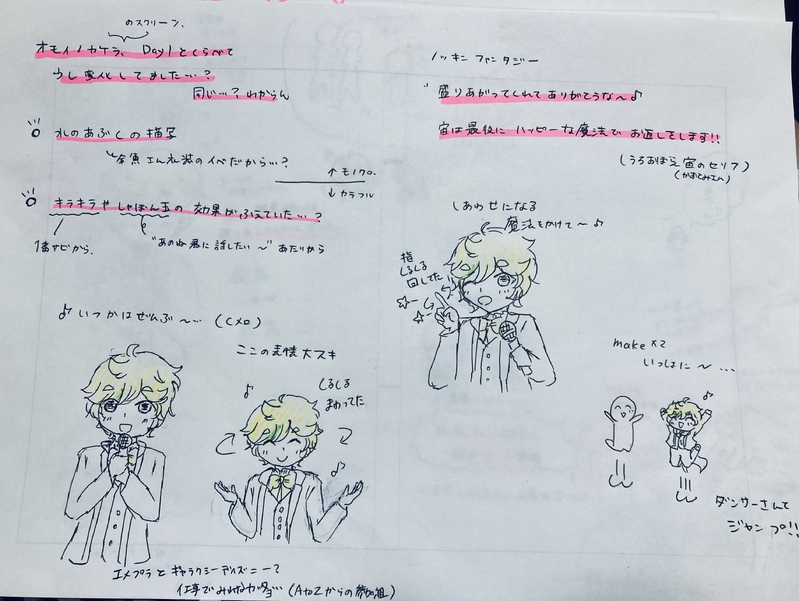 のスクリーン、
オモイノカケラ、Day1とくらべて
少し変化してました…?
同じ…?わからん
水のあぶくの描写
余魚エんれ装のイベだから…?
↑モノクロ。
↓カラフル
キラキラやしゃぼん玉の効果がふえていた…?
1番サビから。
"あのね君に話したい〜"あたりから
♪いつかはぜんぶ〜… (Cメロ)
ここの表情大スキ
♪
くるくる
まわってた
♪
エメプラとギャラクシーアイズニー?
(AtoZからの参加組)
ノッキンファンタジー
"盛りあがってくれてありがとうな〜♪
宙は最後にハッピーな魔法でお返しをします!!
(かすてみエん)
しあわせになる
魔法をかけて〜♪
指
くるくる
回してた
make×2
いっしょに〜…
♪
ダンサーさんて
ジャンプ!!